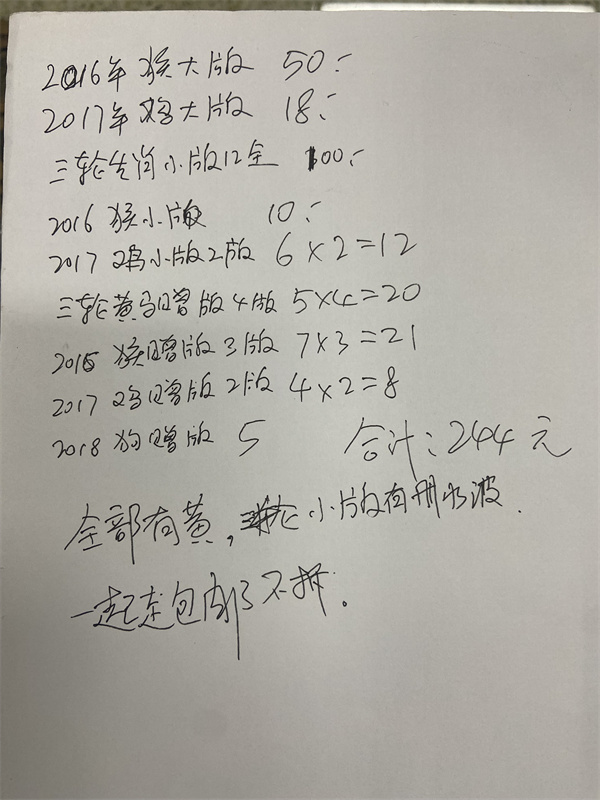 2016年猴大版 50.-
2017年鸡大版 18.-
三轮生肖小版12全 100.-
2016 猴小版 10.-
2017 鸡小版2版 6×2=12
三轮黄马赠版4版 5×4=20
2016 猴赠版3版 7×3=21
2017 鸡赠版2版 4×2=8
2018 狗赠版 5 合计:244元
全部有黄,三轮小版有册水波.
一起走包邮不拆.